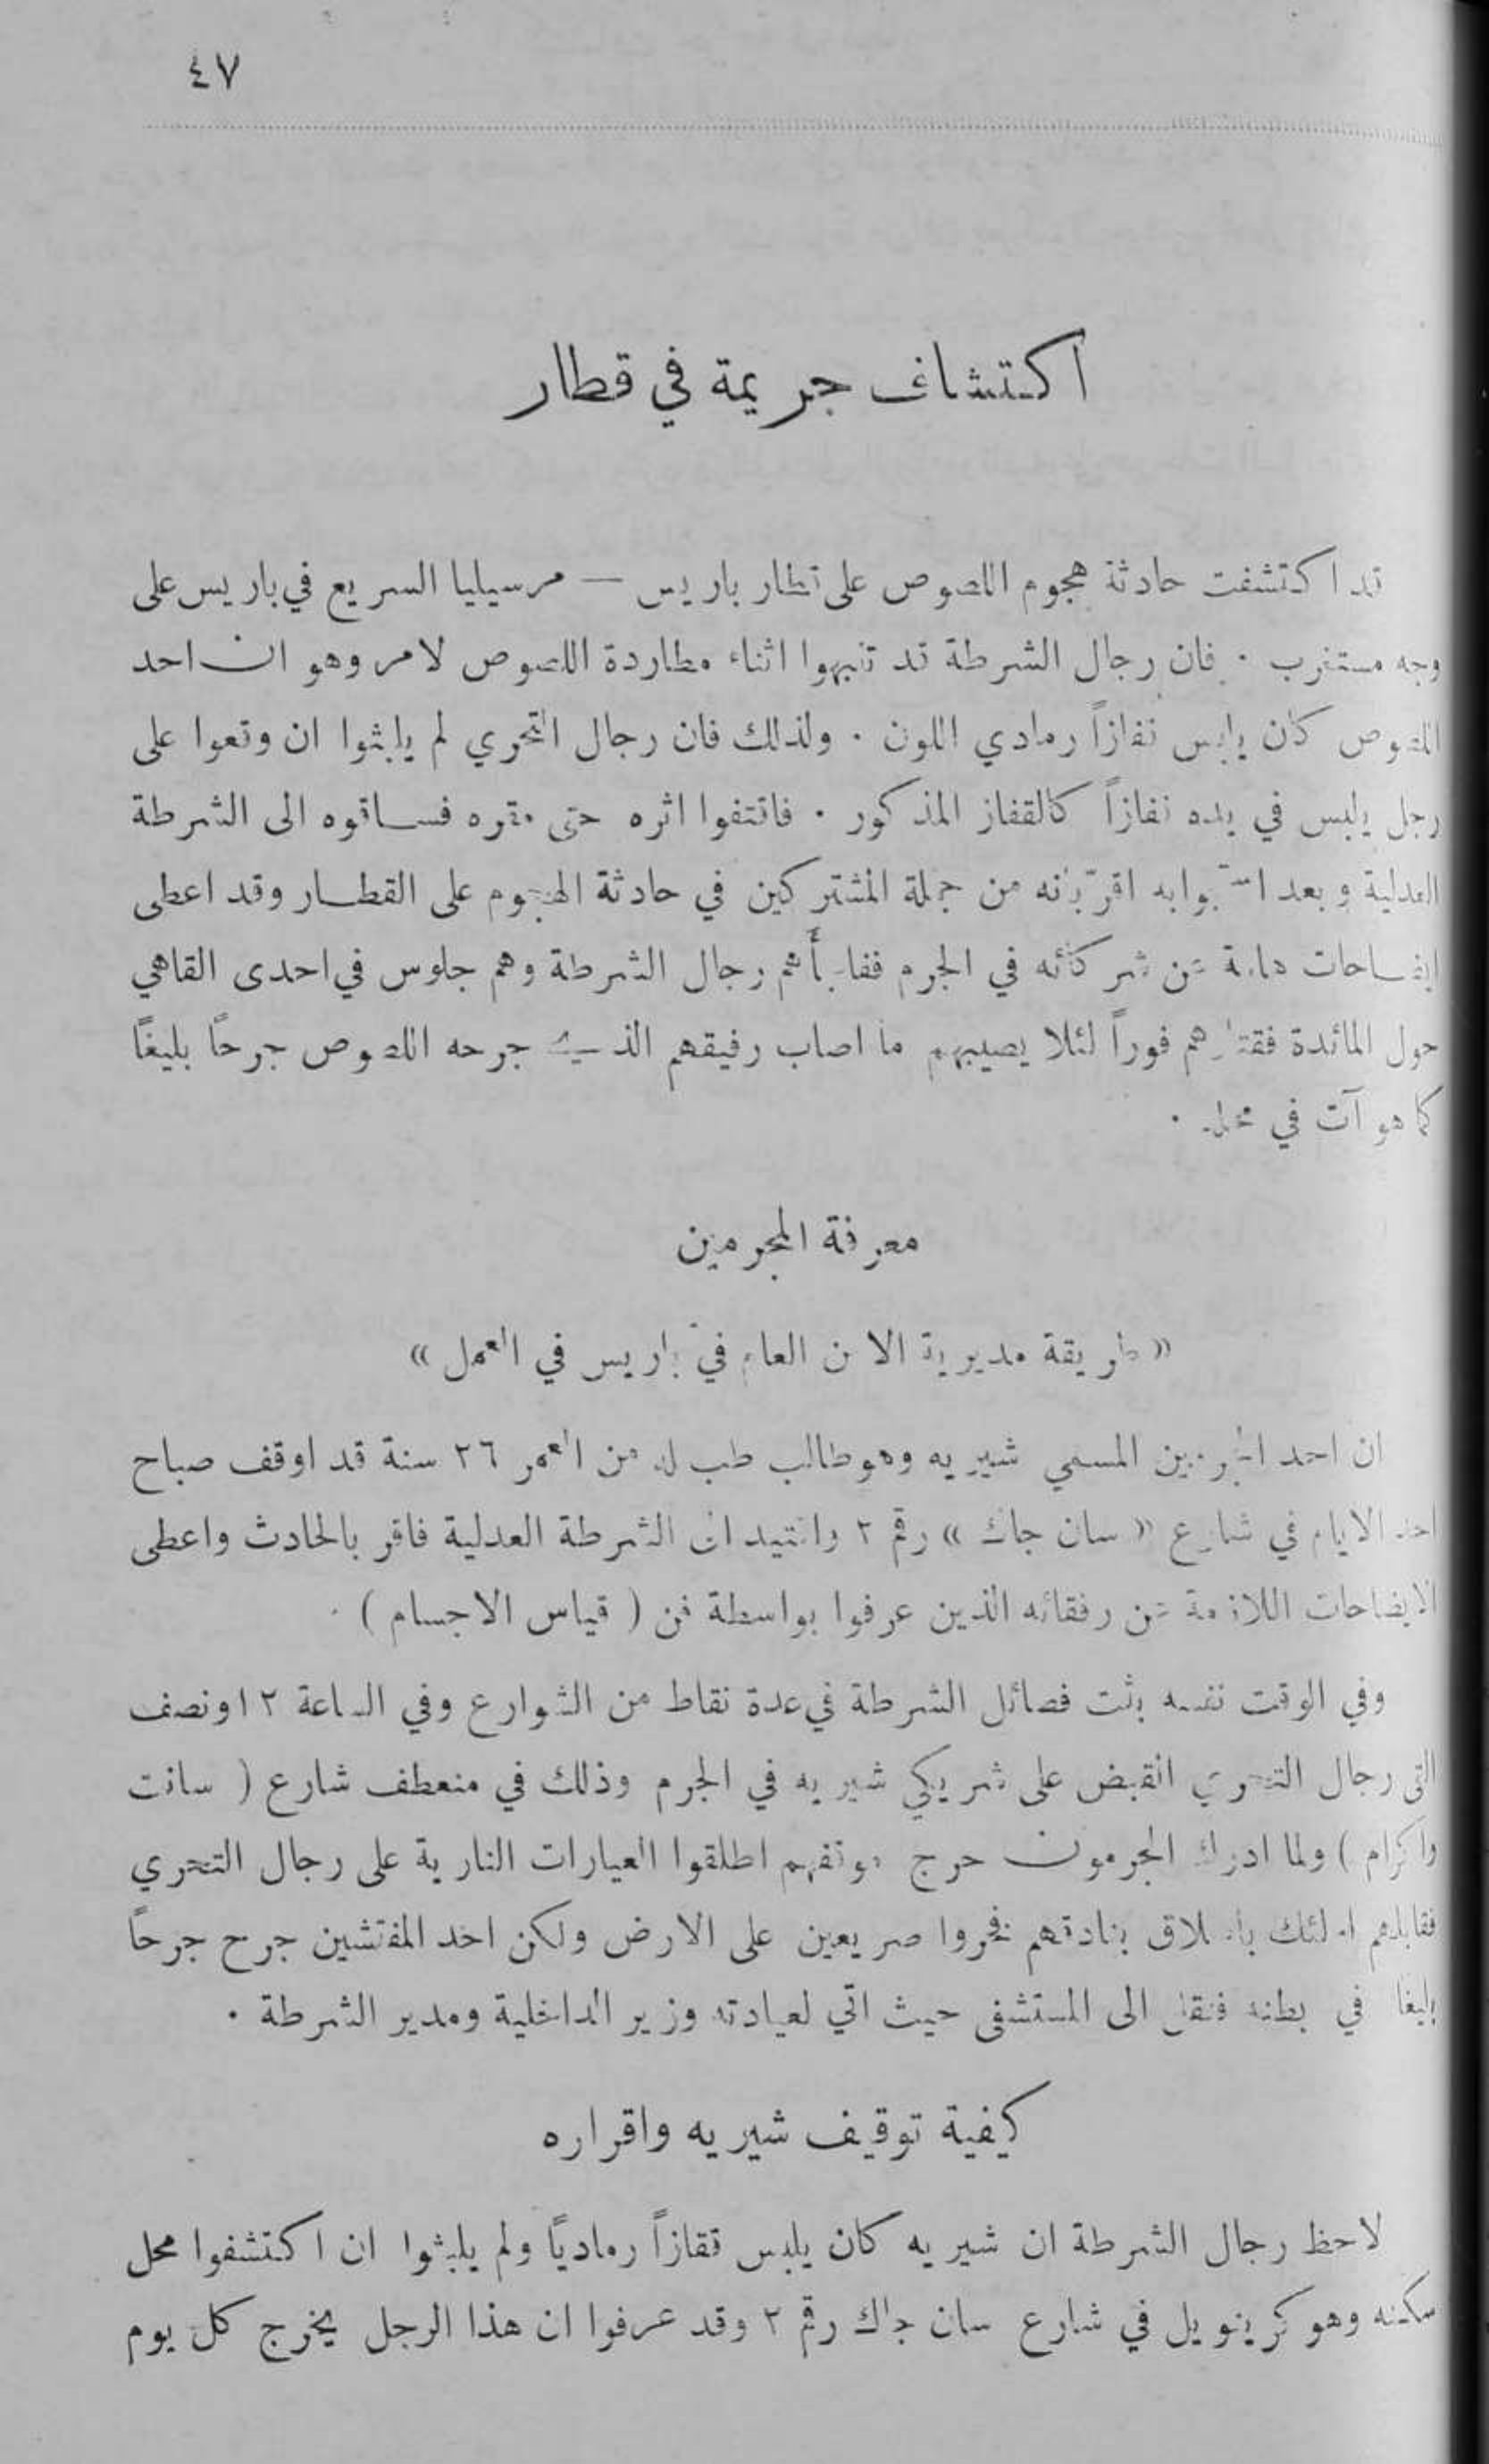 ٤٧
اكتشاف جريمة في قطار
قد اكتشفت حادثة هجوم اللصوص على قطار باريس — مرسيليا السريع في باريس على
وجه مستغرب . فان رجال الشرطة قد تنبهوا اثناء مطاردة اللصوص لامر وهو ان احد
اللصوص كان يلبس قفازاً رمادي اللون . ولذلك فان رجال التحري لم يلبثوا ان وقعوا على
رجل يلبس في يده قفازاً كالقفاز المذكور . فاقتفوا اثره حتى مقره فساقوه الى الشرطة
العدلية وبعد استجوابه اقرّ بانه من جملة المشتركين في حادثة الهجوم على القطار وقد اعطى
ايضاحات هامة عن شركائه في الجرم ففاجأهم رجال الشرطة وهم جلوس في احدى القاهي
حول المائدة فقتلوهم فوراً لئلا يصيبهم ما اصاب رفيقهم الذي جرحه اللصوص جرحًا بليغًا
كما هو آت في محله .
معرفة المجرمين
« طريقة مديرية الامن العام في باريس في العمل »
ان احد المجرمين المسمي شيريه وهو طالب طب له من العمر ٢٦ سنة قد اوقف صباح
احد الايام في شارع « سان جاك » رقم ٢ واقتيد الى الشرطة العدلية فاقر بالحادث واعطى
الايضاحات اللازمة عن رفقائه الذين عرفوا بواسطة فن ( قياس الاجسام ) .
وفي الوقت نفسه بثت فصائل الشرطة في عدة نقاط من الشوارع وفي الساعة ١٢ ونصف
القى رجال التحري القبض على شريكي شيريه في الجرم وذلك في منعطف شارع ( سانت
واكرام ) ولما ادرك المجرمون حرج موقفهم اطلقوا العيارات النارية على رجال التحري
فقابلهم اولئك باطلاق بنادقهم فخروا صريعين على الارض ولكن احد المفتشين جرح جرحًا
بليغا في بطنه فنقل الى المستشفى حيث اتي لعيادته وزير الداخلية ومدير الشرطة .
كيفية توقيف شيريه واقراره
لاحظ رجال الشرطة ان شيريه كان يلبس قفازاً رماديًا ولم يلبثوا ان اكتشفوا محل
سكنه وهو كرينويل في شارع سان جاك رقم ٢ وقد عرفوا ان هذا الرجل يخرج كل يوم